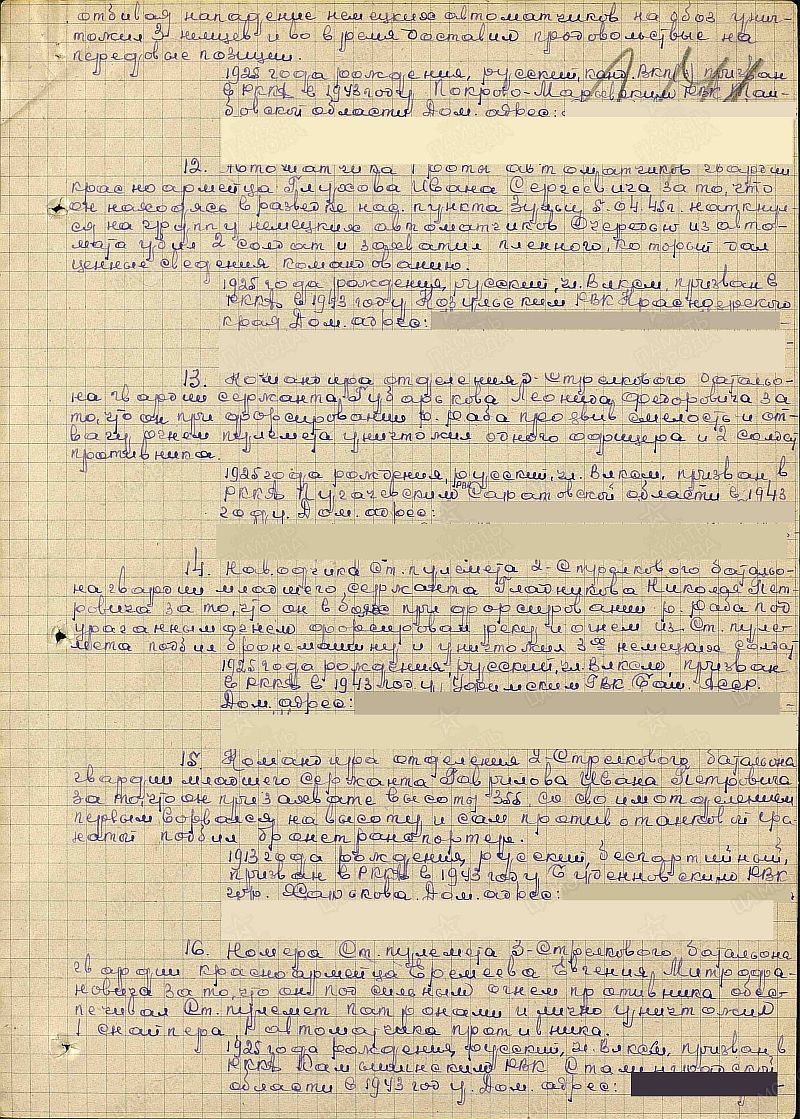 отбивая нападение немецких автоматчиков на обоз унич-
тожил 3 немцев и во время доставил продовольствые на
передовые позиции.
1925 года рождения, русский, канд. ВКП(б) призван
в РККА в 1943 году Покрово-Марфвским РВК Там-
бовской области Дом. адрес:
12. Автоматчика 1 роты автоматчиков гвардии
красноармейца Глухова Ивана Сергеевича за то, что
он находясь в разведке нас. пункта 5.04.45г. наткнул-
ся на группу немецких автоматчиков Очередью из авто-
мата убил 2 солдат и захватил пленного, который дал
ценные сведения командованию.
1925 года рождения, русский, чл. Влксм, призван в
РККА в 1943 году Козульским РВК Красноярского
края Дом. адрес:
13. Командира отделения 2-Стрелкового батальо-
на гвардии сержанта Губарькова Леонида Федоровича за
то, что он при форсировании р. Раба проявив смелость и от-
вагу огнем пулемета уничтожил одного офицера и 2 солдат
противника.
1925 года рождения, русский, чл. Влксм, призван в
РККА Пугачевским РВК Саратовской области в 1943
году. Дом. адрес:
14. Наводчика Ст. пулемета 2-Стрелкового батальо-
на гвардии младшего сержанта Гладникова Николая Пет-
ровича за то, что он в боях при форсировании р. Раба под
ураганным огнем форсировал реку и огнем из Ст. пуле-
мета подбил бронемашину и уничтожил 3ое немецких солдат
1925 года рождения, русский, чл. Влксм, призван
в РККА в 1943 году, Уфимским РВК Баш. АССР.
Дом. адрес:
15. Командира отделения 2-Стрелкового батальона
гвардии младшего сержанта Гаврилова Ивана Петровича
за то, что он при захвате высоты 355, со своим отделением
первым ворвался на высоту и сам противотанковой гра-
натой подбил бронетранспортер.
1913 года рождения, русский, беспартийный,
призван в РККА в 1943 году Буденновским РВК
гор. Харькова. Дом. адрес:
16. Номера Ст. пулемета 3-Стрелкового батальона
гвардии красноармейца Еремеева Евгения Митрофа-
новича за то, что он под сильным огнем противника обес-
печивал Ст. пулемет патронами и лично уничтожил
1 снайпера, 1 автоматчика противника.
1925 года рождения, русский, чл. Влксм, призван в
РККА Камышинским РВК Сталинградской
области в 1943 году. Дом. адрес: